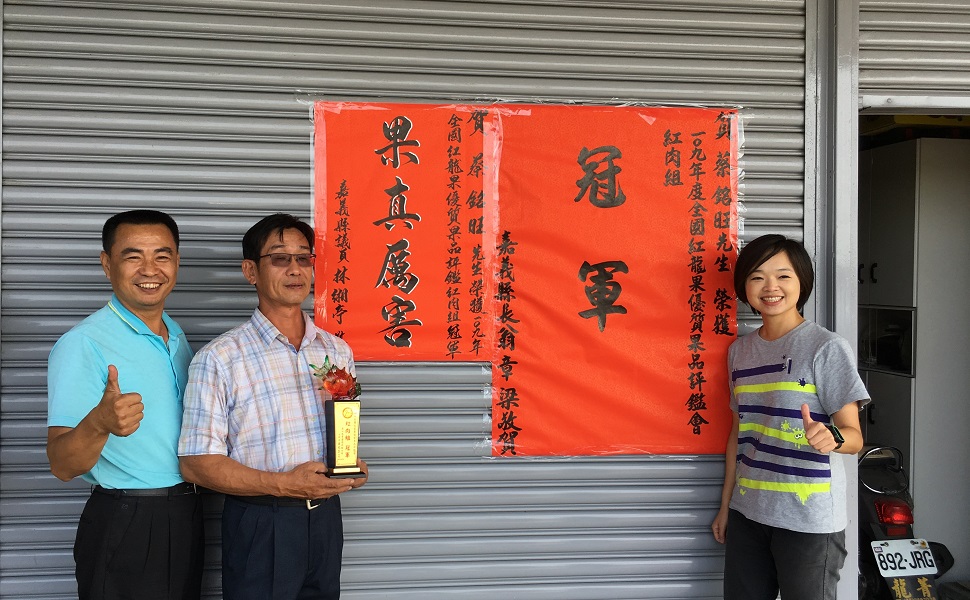 賀 蔡銘旺先生 榮獲
一〇九年度全國紅龍果優質果品評鑑會
紅肉組
冠軍
嘉義縣長翁章梁敬賀
賀 蔡銘旺 先生榮獲一〇九年
全國紅龍果優質果品評鑑紅肉組冠軍
果真厲害
嘉義縣議員 林緗亭
紅肉組 冠軍
892-JRG
龍青